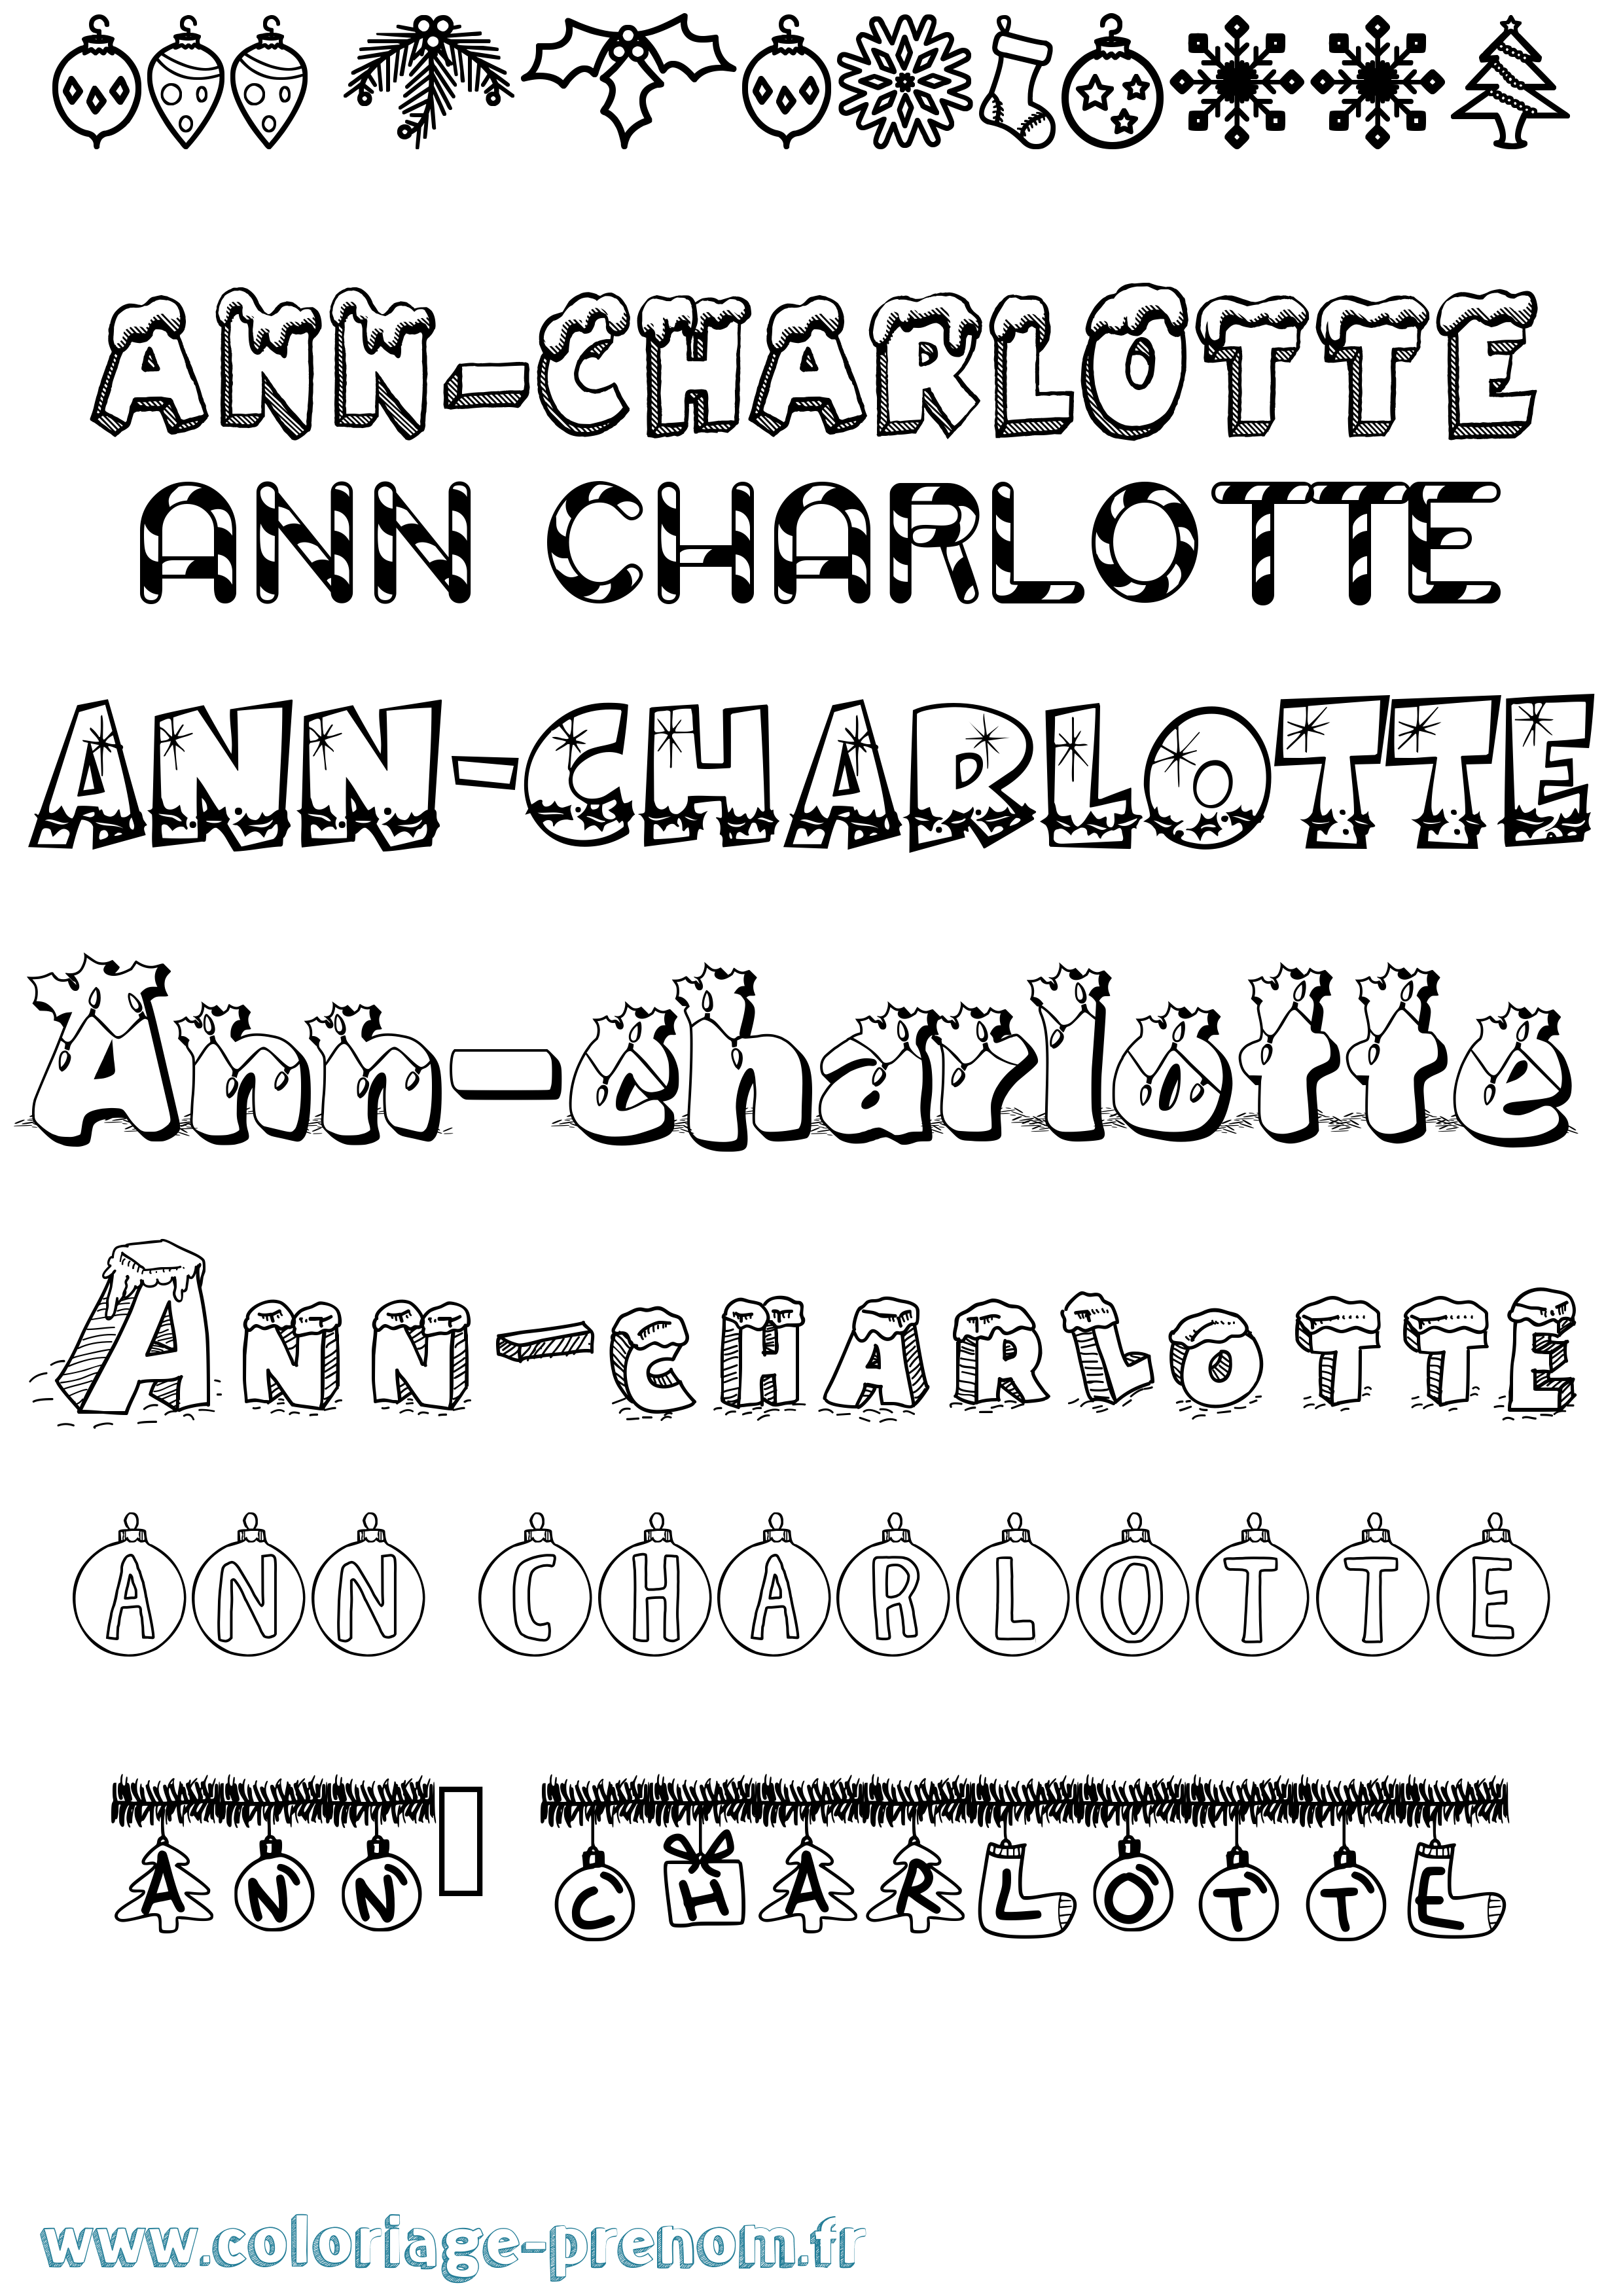 ANN-CHARLOTTE
ANN CHARLOTTE
ANN-CHARLOTTE
Ann-charlotte
Ann-charlotte
ANN CHARLOTTE
ANN CHARLOTTE
www.coloriage-prenom.fr